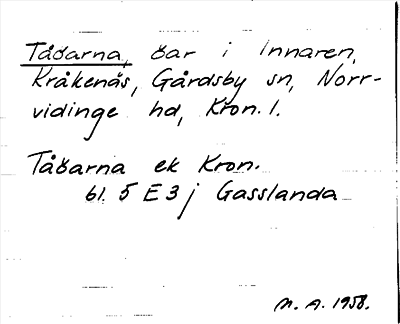 Tåöarna, öar i Innaren,
Kråkenäs, Gårdsby sn, Norr-
vidinge hd, Kron. l.
Tåöarna ek Kron.
bl. 5 E 3 j Gasslanda
M. A. 1958.